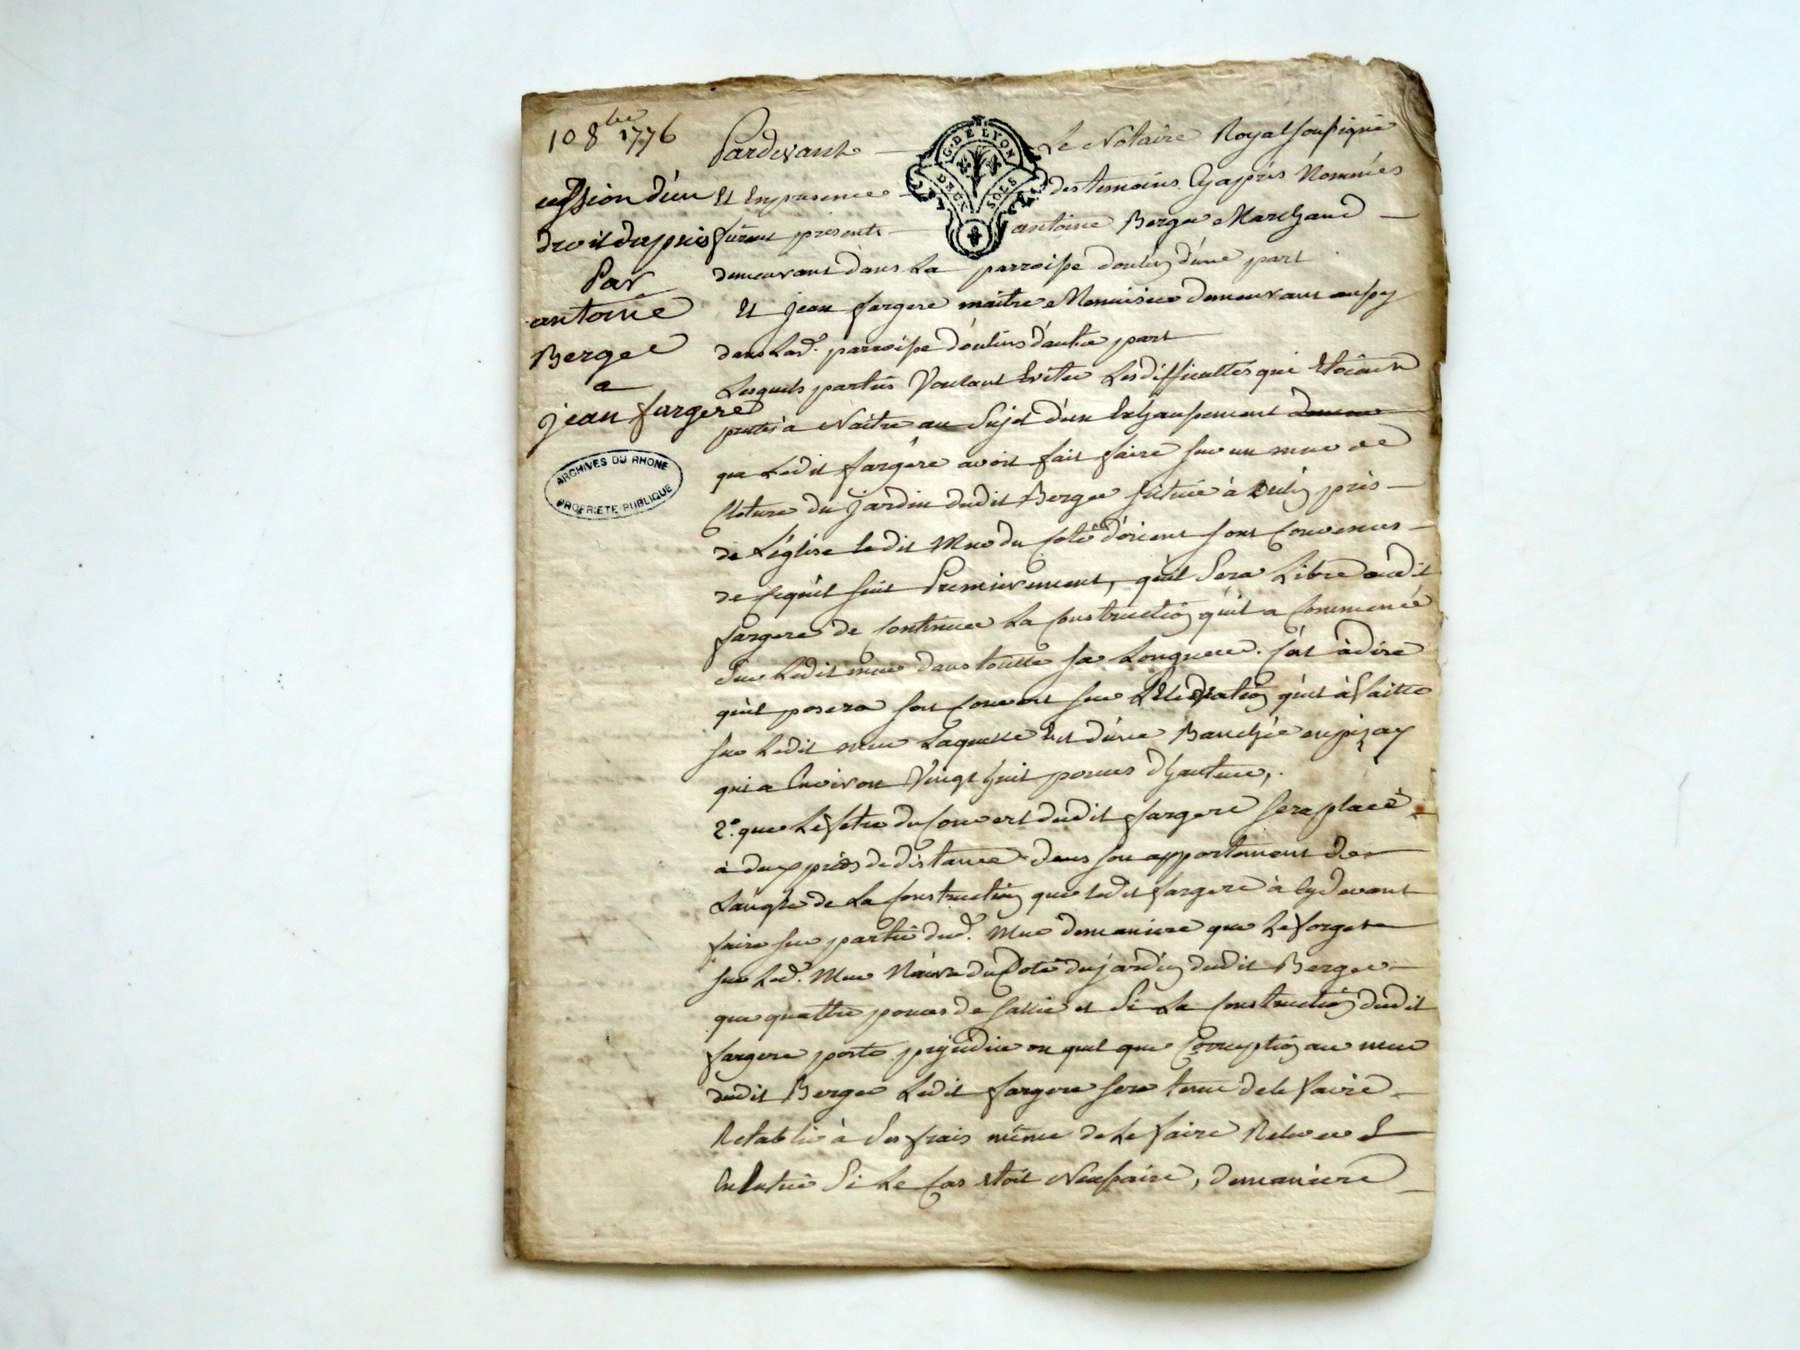 10 8bre 1776
cession d'un
droit d'apuis
Par
antoine
Berger
a
jean fargere
ARCHIVES DU RHONE
PROPRIETE PUBLIQUE
G. DE LYON
DEUX SOLS
Pardevant Le Notaire Royal soussigné
Et En presence des temoins Cyaprès Nommés
furent presents antoine Berger Marchand
demeurant dans La parroisse doulin d'une part
Et jean fargere maitre Menuisier demeurant aussy
dans Lad.e parroisse d'oulins d'autre part
Lesquels parties Voulant Eviter Les difficultés qui Etoient
pretes a Naitre au Sujet d'un Exhaussement
que Ledit fargère avoit fait faire sur un mur de
Cloture du Jardin dudit Berger situé à Oulin près
de L'église ledit Mur du Coté d'orient sont Convenus
de Cequit suit Premierement, quil Sera Libre audit
fargere de Continuer La Construction quil a Commencé
sur Ledit mur dans toutte sa Longueur. C'est à dire
quil posera son Couvert sur L'Elevation quil à faitte
sur Ledit mur Laquelle Est d'une Banchée en pizay
qui a Environ Vingt huit pouces d'hauteur,
2.° que du Couvert dudit fargere sera placé
à deux pieds de distance dans son appartement de
L'angle de La Construction que ledit fargere à Cy devant
faire sur partie dud. Mur demaniere que Le forget
sur Led. Mur N'aura du Coté du jardin dudit Berger
que quattre pouces de sallie et Si La Construction dudit
fargere porte prejudice ou quel que Corruption au mur
dudit Berger Ledit fargere sera tenu de le faire
Retablir à Ses frais même de Le faire Relever
En Entier Si Le Cas Etoit Necessaire, demaniere